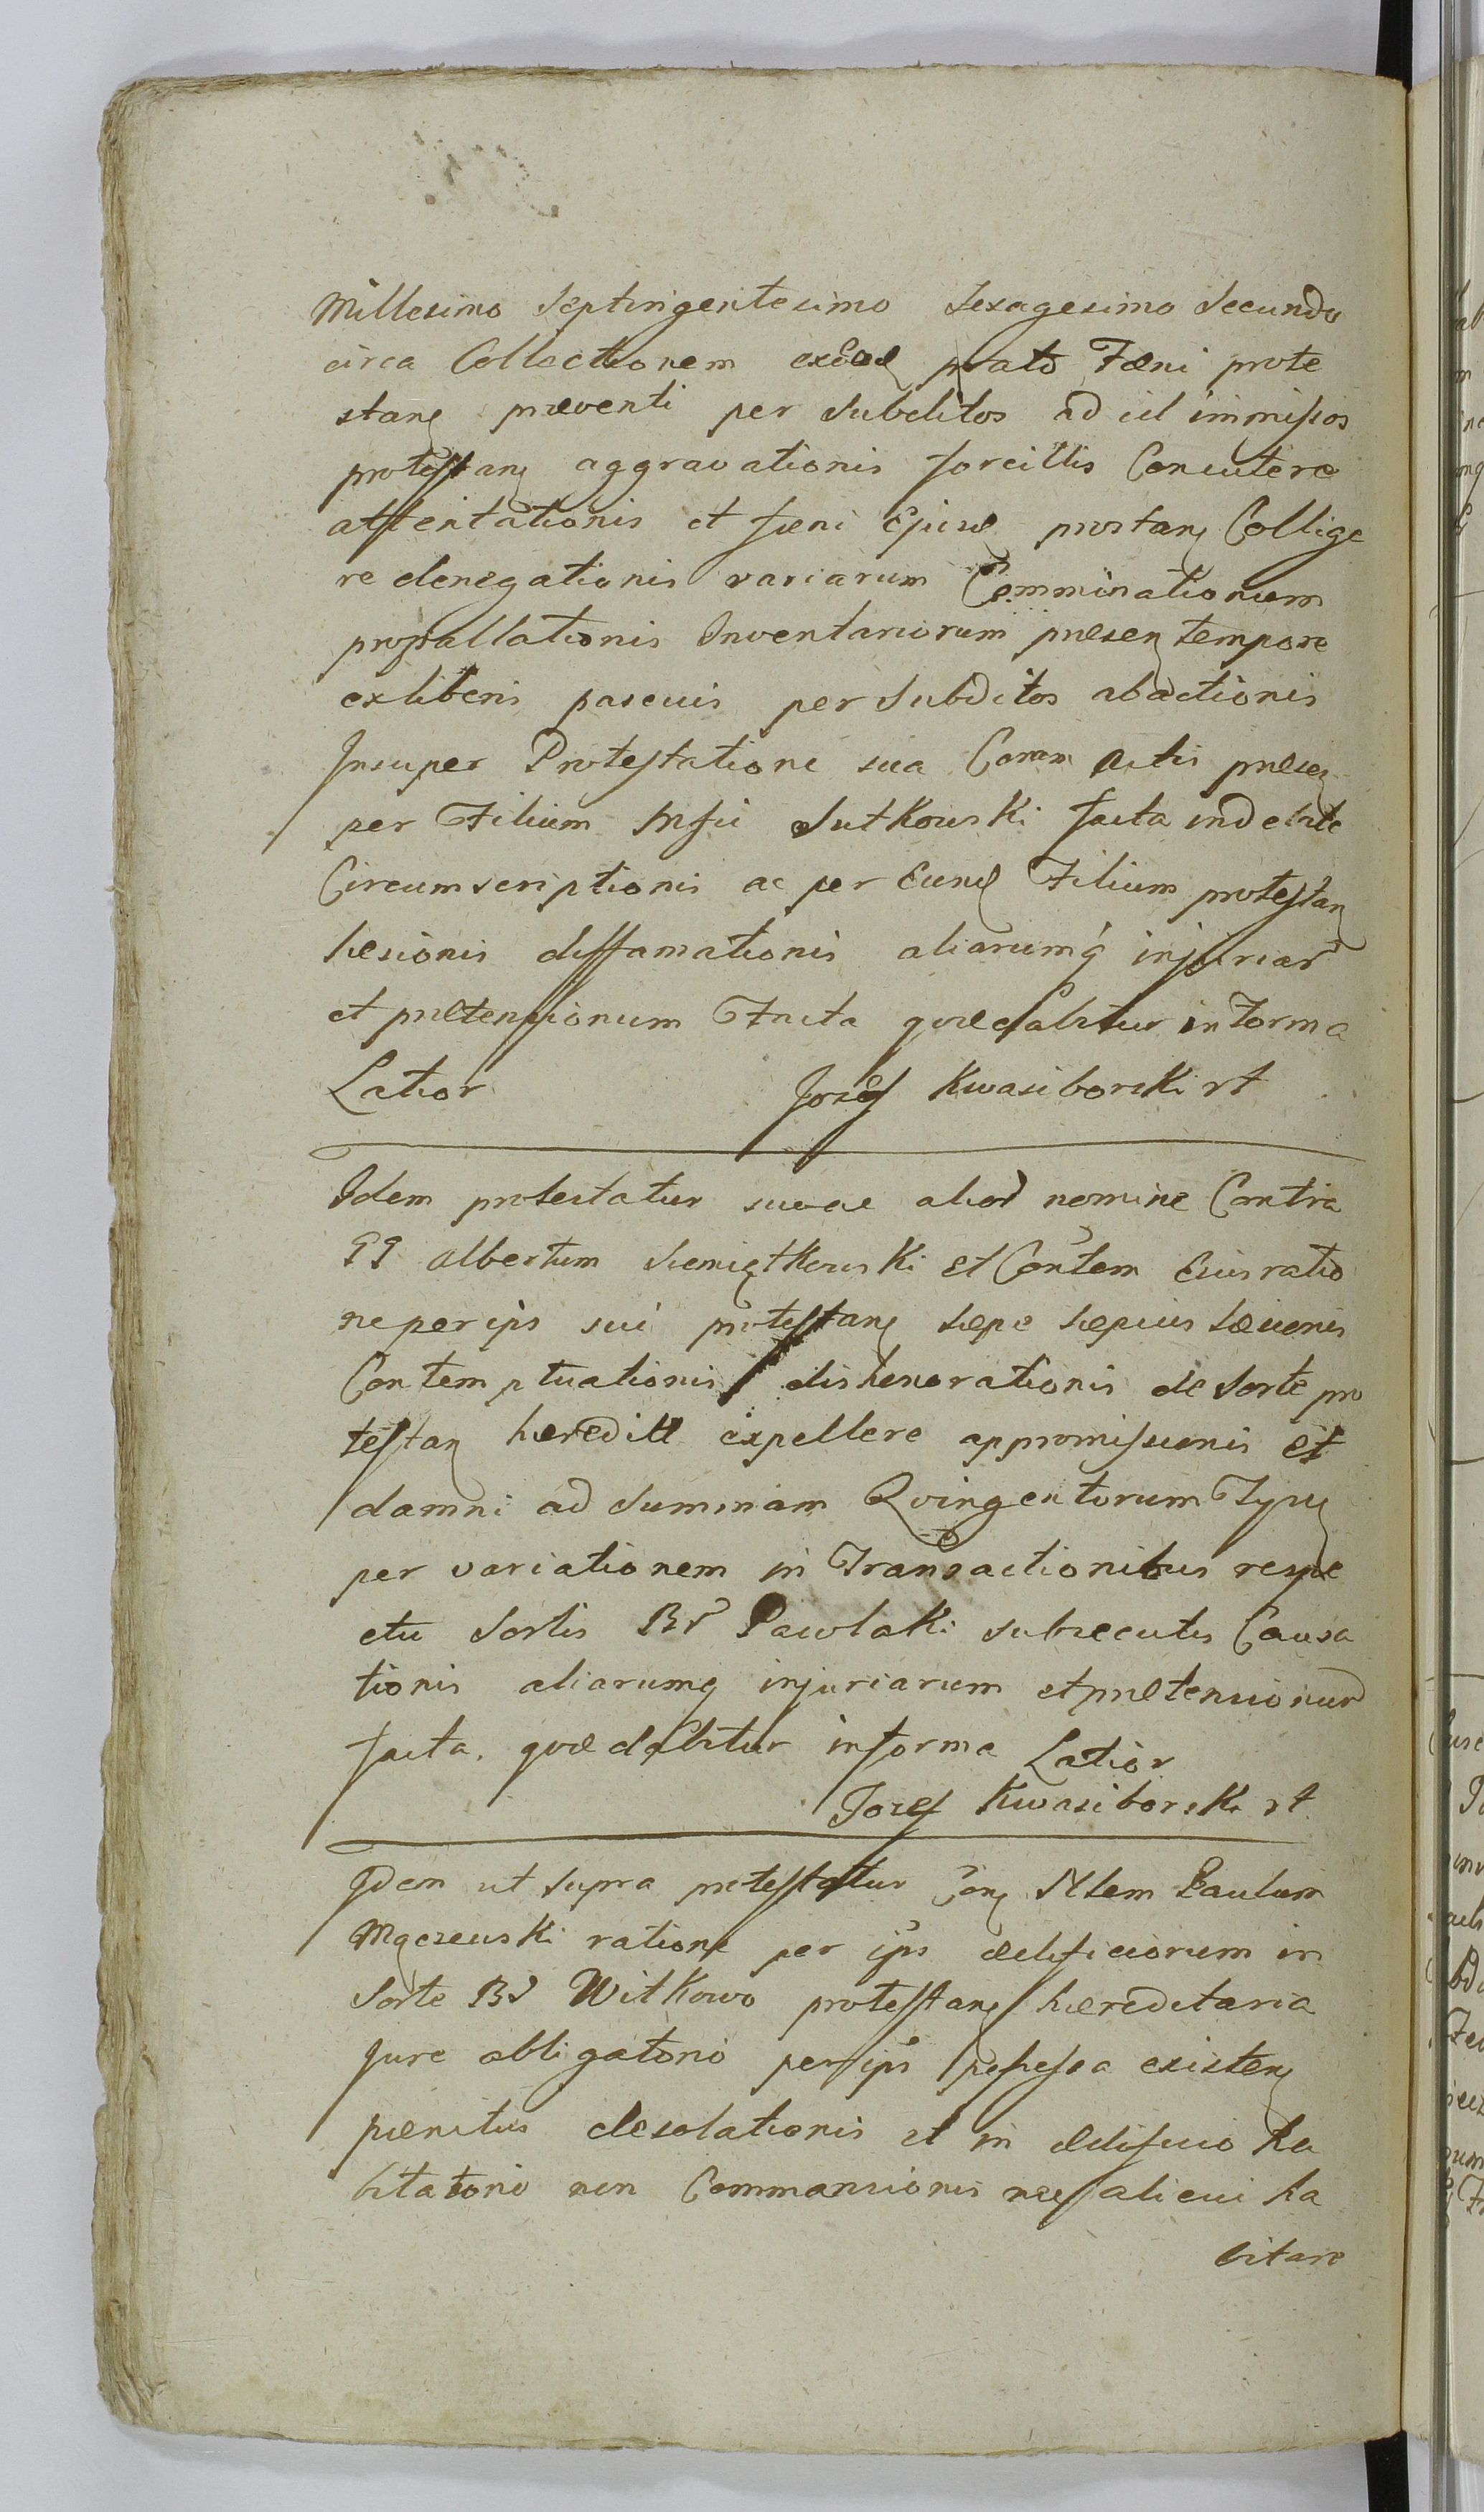 Millesimo Septingentesimo Sexagesimo Secundo
circa Collectionem prato Fæni prote
stanȩ præventi per Subditos ad id immissos
protestanȩ aggravationis forcillis Concutere
attentationis et fæni Ejusd Collige
re denegationis variarum Comminationum
propallationis Inventariorum præsen tempore
ex liberis pascuis per Subditos abactionis
Insuper Protestatione sua Coram Actis præsen
per Filium Sutkowski facta indebite
Circumscriptionis ac per Eund Filium protestan
læsionis diffamationis aliarumq injuriar
et prætensionum Facta quæ dabitur in Forma
Latior Jozef Kwasiborski rt
Idem protestatur suo ac alior nomine Contra
GG Albertum Sieniątkowski et Con̄tem Eius ratio
ne per ips sui protestan sæpe sæpius læsionis
Contemptuationis dishonorationis de Sorte pro
testan hæredit expellere appromissionis et
damni ad Summam Qvingentorum
per variationem in Transactionibus respe
ctu Sortis Br Pawlaki subsecutis Causa
tionis aliarumq injuriarum et prætensionum
facta, quæ dabitur in forma Latior
Jozef Kwasiborski rt
Idem ut Supra protestatur Con Nlem Paulum
Mączewski ratione per ips ædificiorum in
Sorte Bd Witkowo protestan hæreditaria
Jure obligatorio per ips possessa existen
pænitus desolationis et in ædificio ha
bitatorio non Commansionis nec alicui ha
bitare